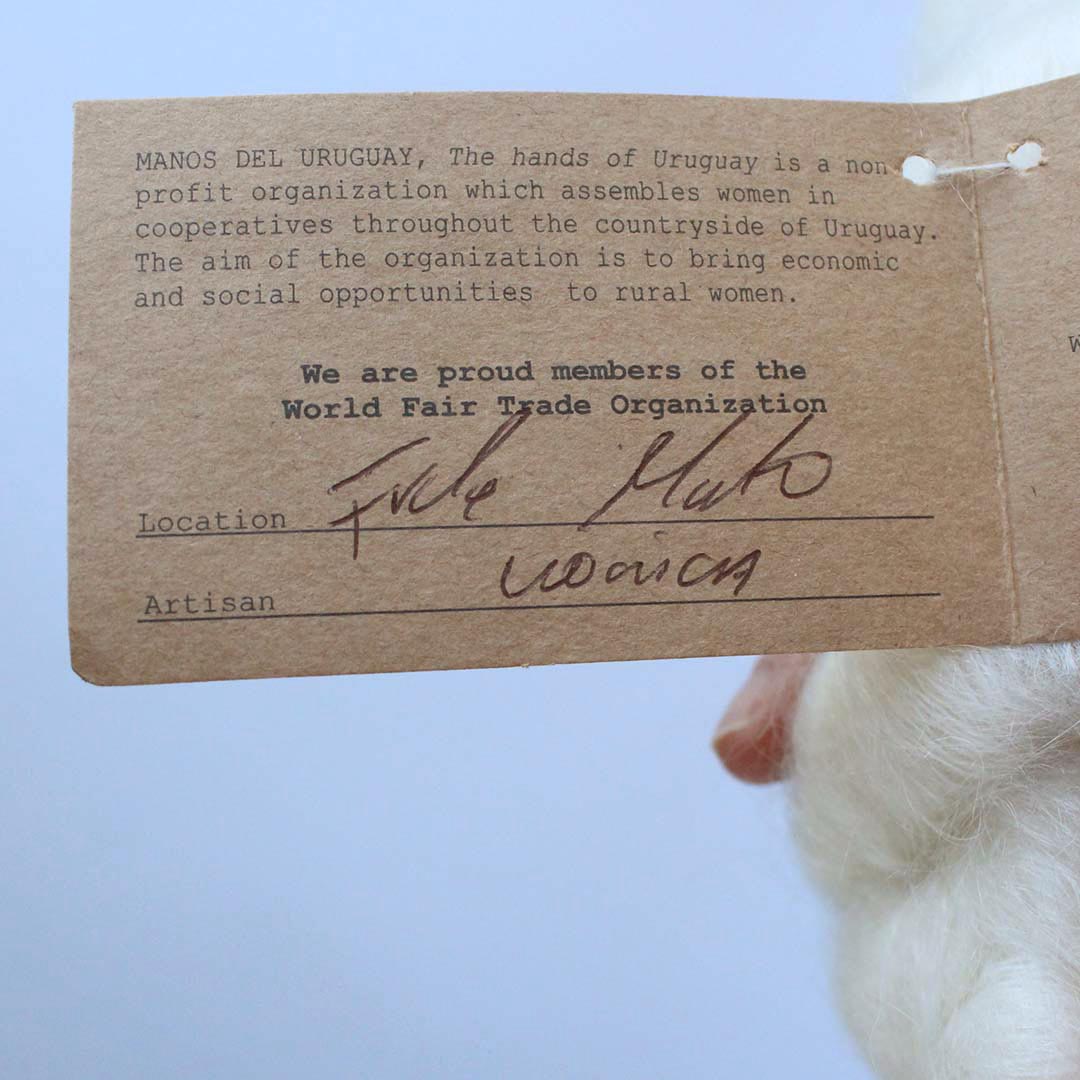 MANOS DEL URUGUAY, The hands of Uruguay is a non
profit organization which assembles women in
cooperatives throughout the countryside of Uruguay.
The aim of the organization is to bring economic
and social opportunities to rural women.
We are proud members of the
World Fair Trade Organization
Location
Artisan